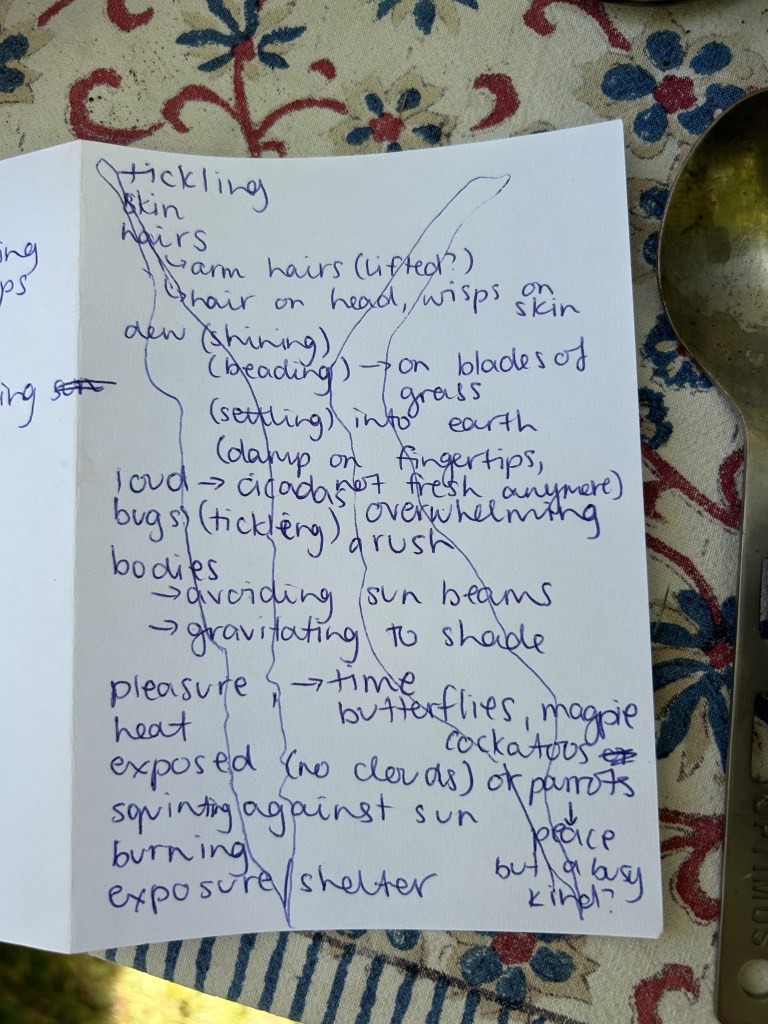 ing
ps
ing
tickling
skin
hairs
↳arm hairs (lifted?)
↳hair on head, wisps on
skin
dew (shining)
(beading) → on blades of
grass
(settling) into earth
(damp on fingertips,
not fresh anymore)
loud → cicadas
overwhelming
bugs (tickling) a rush
bodies
→ avoiding sun beams
→ gravitating to shade
pleasure, → time
butterflies, magpie
heat
cockatoos
exposed (no clouds) or parrots
↓
squinting against sun
peace
burning
but a busy
exposure/shelter
kind?
OPTIMUS